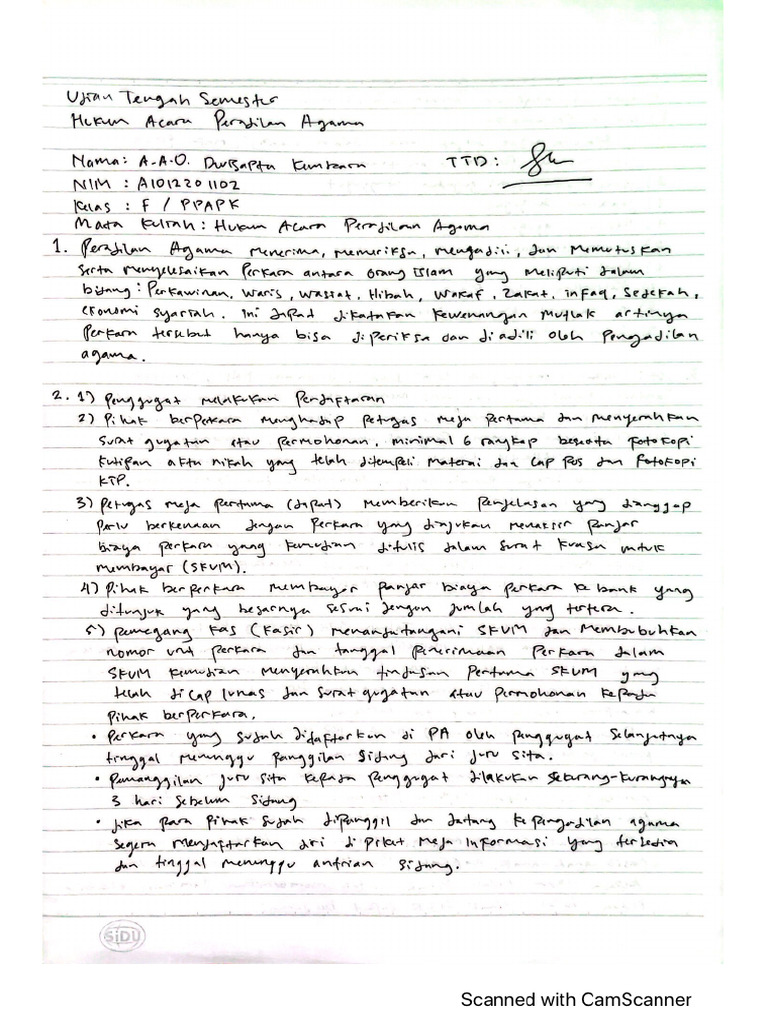 Ujian Tengah Semester
Hukum Acara Peradilan Agama
Nama: A.A.O. Dwisapta Kumbara TTD:
NIM : A1012201102
Kelas : F / PPAPK
Mata Kuliah : Hukum Acara Peradilan Agama
1. Peradilan Agama menerima, memeriksa, mengadili, dan memutuskan
serta menyelesaikan Perkara antara orang Islam yang meliputi dalam
bidang : Perkawinan, Waris, Wasiat, Hibah, Wakaf, Zakat, infaq, Sedekah,
ekonomi syariah. Ini dapat dikatakan kewenangan mutlak artinya
Perkara tersebut hanya bisa diperiksa dan diadili oleh Pengadilan
agama.
2. 1) Penggugat melakukan Pendaftaran
2) Pihak berperkara menghadap petugas meja pertama dan menyerahkan
surat gugatan atau permohonan, minimal 6 rangkap beserta Fotokopi
kutipan akta nikah yang telah ditempeli materai dan cap pos dan Fotokopi
KTP.
3) petugas meja pertama (dapat) memberikan penjelasan yang dianggap
perlu berkenaan dengan Perkara yang diajukan menaksir panjar
biaya perkara yang kemudian ditulis dalam surat kuasa untuk
membayar (SKUM).
4) Pihak berperkara membayar panjar biaya perkara ke bank yang
ditunjuk yang besarnya sesuai dengan jumlah yang tertera.
5) pemegang kas (kasir) menandatangani SKUM dan membubuhkan
nomor urut perkara dan tanggal penerimaan Perkara dalam
SKUM kemudian menyerahkan tindasan Pertama SKUM yang
telah di cap lunas dan surat gugatan atau Permohonan kepada
pihak berperkara.
• Perkara yang sudah didaftarkan di PA oleh penggugat selanjutnya
tinggal menunggu panggilan sidang dari juru sita.
• Pemanggilan juru sita kepada penggugat dilakukan sekurang-kurangnya
3 hari sebelum sidang
• Jika para pihak sudah dipanggil dan datang ke pengadilan agama
segera mendaftarkan diri di piket meja informasi yang tersedia
dan tinggal menunggu antrian sidang.
SiDU
Scanned with CamScanner